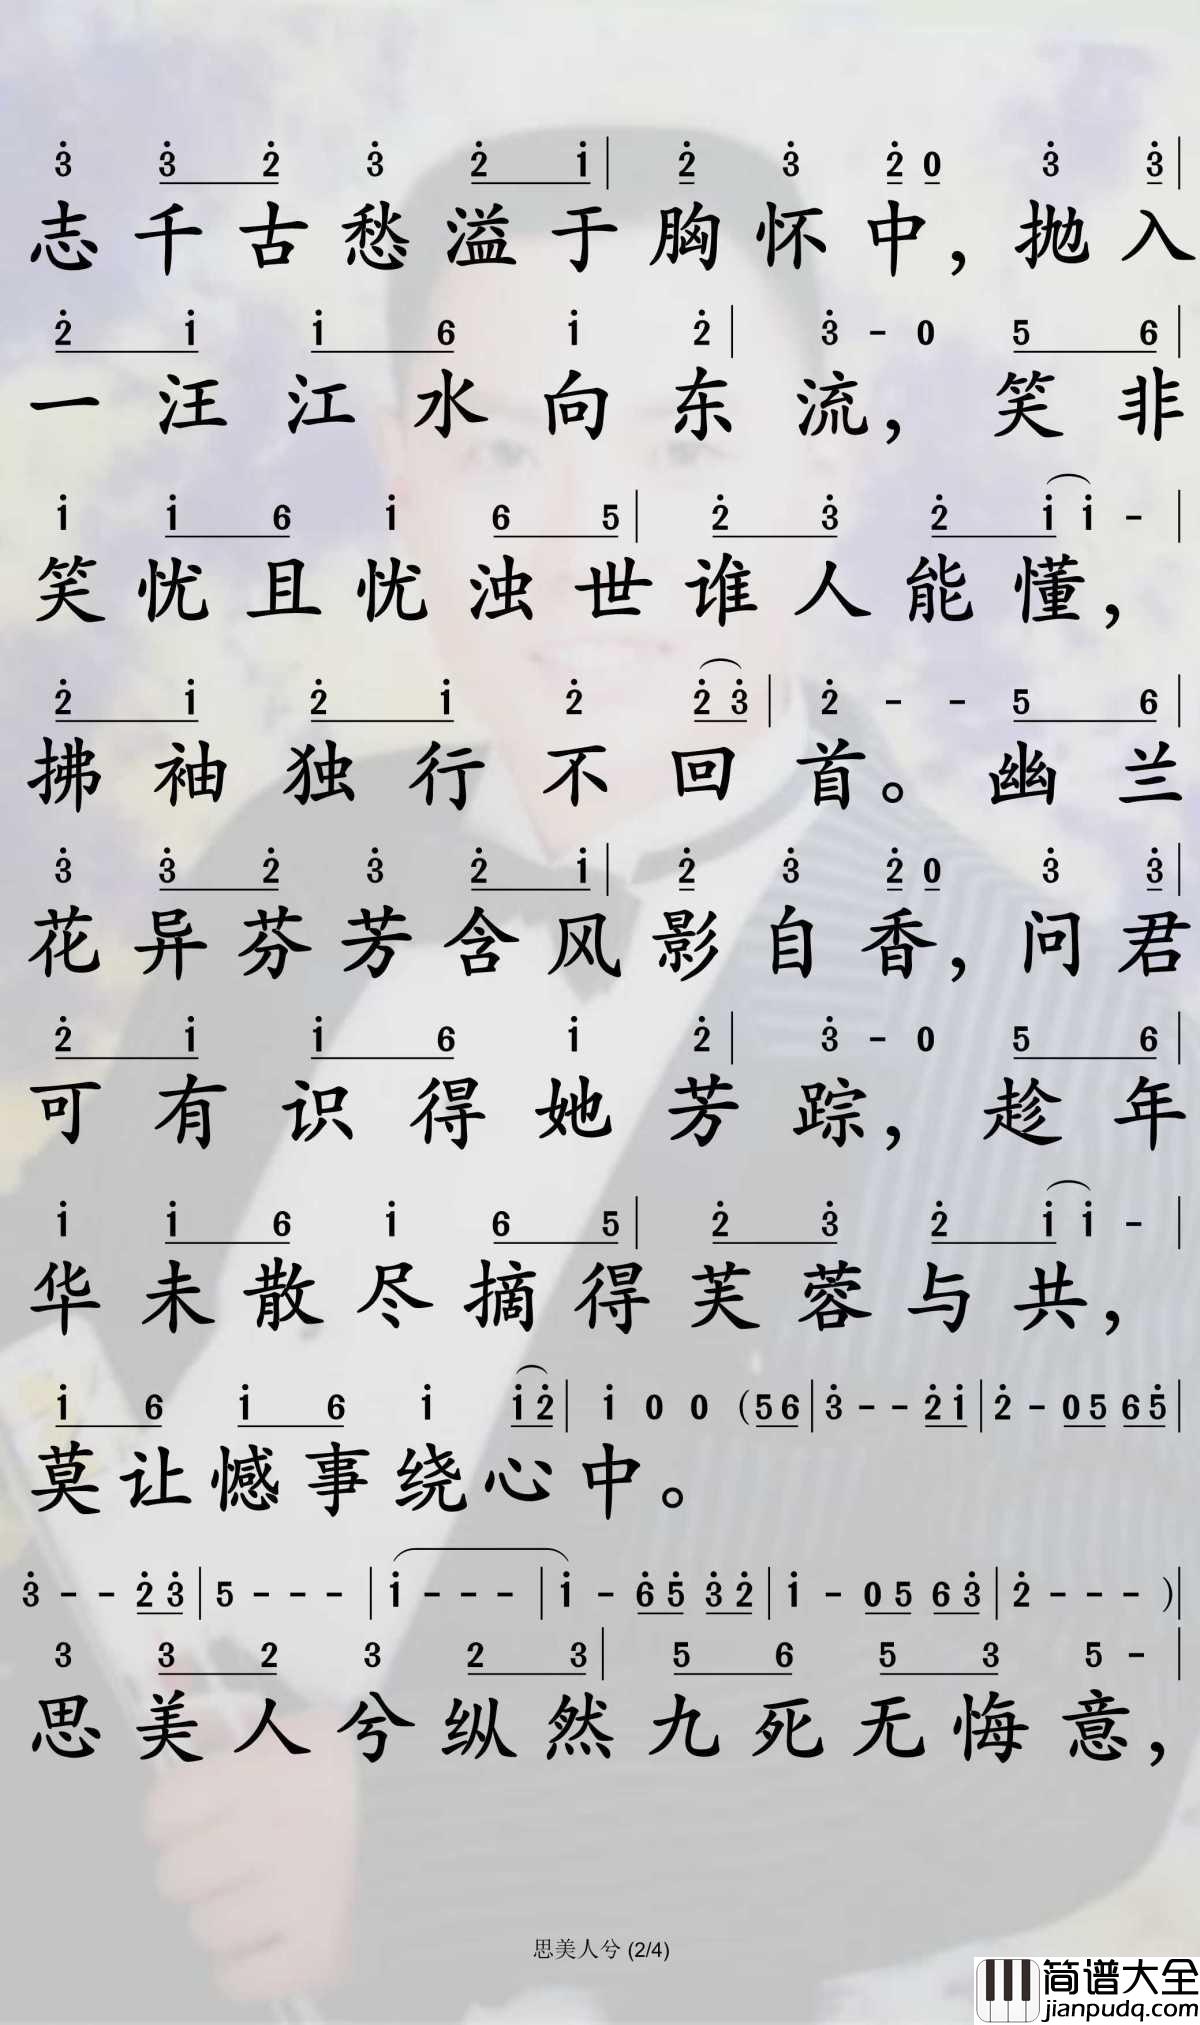 3̇ 3̇ 2̇ 3̇ 2̇ 1̇ | 2̇ 3̇ 2̇ 0 3̇ 3̇ |
志千古愁溢于胸怀中，抛入
2̇ 1̇ 1̇ 6 1̇ 2̇ | 3̇ - 0 5 6 |
一汪江水向东流，笑非
1̇ 1̇ 6 1̇ 6 5 | 2̇ 3̇ 2̇ 1̇ 1̇ - |
笑忧且忧浊世谁人能懂，
2̇ 1̇ 2̇ 1̇ 2̇ 2̇ 3̇ | 2̇ - - 5 6 |
拂袖独行不回首。幽兰
3̇ 3̇ 2̇ 3̇ 2̇ 1̇ | 2̇ 3̇ 2̇ 0 3̇ 3̇ |
花异芬芳含风影自香，问君
2̇ 1̇ 1̇ 6 1̇ 2̇ | 3̇ - 0 5 6 |
可有识得她芳踪，趁年
1̇ 1̇ 6 1̇ 6 5 | 2̇ 3̇ 2̇ 1̇ 1̇ - |
华未散尽摘得芙蓉与共，
1̇ 6 1̇ 6 1̇ 1̇ 2̇ | 1̇ 0 0 (5 6 | 3̇ - - 2̇ 1̇ | 2̇ - 0 5 6 5̇ |
莫让憾事绕心中。
3̇ - - 2̇ 3̇ | 5 - - - | 1̇ - - - | 1̇ - 6̇ 5̇ 3̇ 2̇ | 1̇ - 0 5 6 3̇ | 2̇ - - - ) |
3 3 2 3 2 3 | 5 6 5 3 5 - |
思美人兮纵然九死无悔意，
思美人兮 (2/4)
简谱大全
jianpudq.com